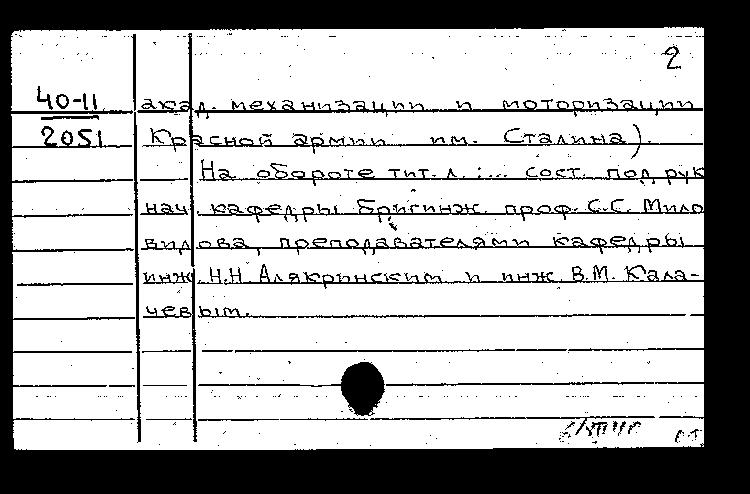 2
40-11
2051
акад. механизации и моторизации
Красной армии им. Сталина).
На обороте тит. л. :... сост. под рук
нач. кафедры бригинж. проф. С.С. Мило
видова, преподавателями кафедры
инж. Н.Н. Алякринским и инж. В.М. Кала-
чевым.